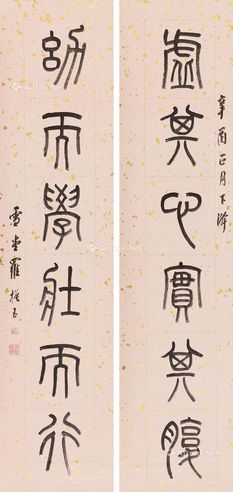 辛酉正月下澣
虛其心實其腹
幼而學壯而行
雪堂羅振玉